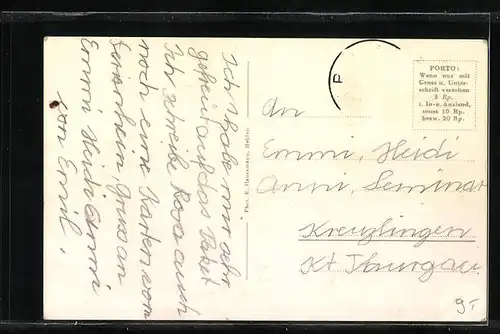 Ich habe mir sehr
gefreut auf das Paket
Ich schreibe Rosa auch
noch eine Karten vom
Gruss an
Emmi Heidi Anni
von Emil.
Phot. E. Heiden
P
PORTO:
Wenn nur mit
Gruss u. Unter-
schrift versehen
5 Rp.
i. In- u. Ausland,
sonst 10 Rp.
bezw. 20 Rp.
An
Emmi, Heidi
Anni, Seminar
Kreuzlingen
Kt Thurgau